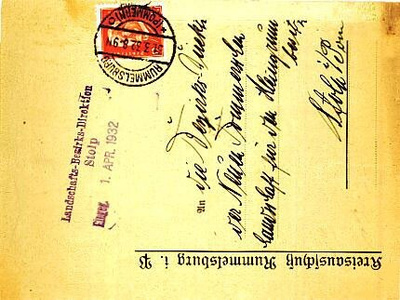 Kreisausschuß Rummelsburg i. P
RUMMELSBURG
31.3.32.8-9N
* (POMMERN) c
Landschafts-Bezirks-Direktion
Stolp
Eingeg. 1. APR. 1932
An
die Bezirks-Direk-
der Neuen Pommerschen
Landschaft für den Kleingrund
besitz
Stolp i/Pom